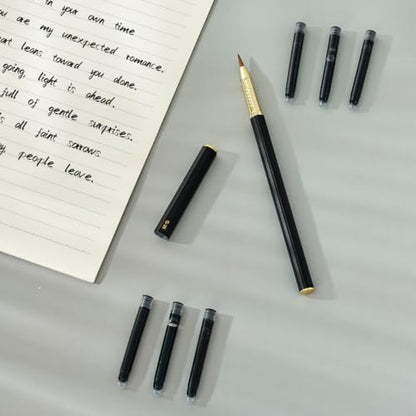 in your own time
you are my unexpected romance.
art leans toward you alone.
going, light is ahead.
full of gentle surprises.
s all faint sorrows
people leave.
M&G